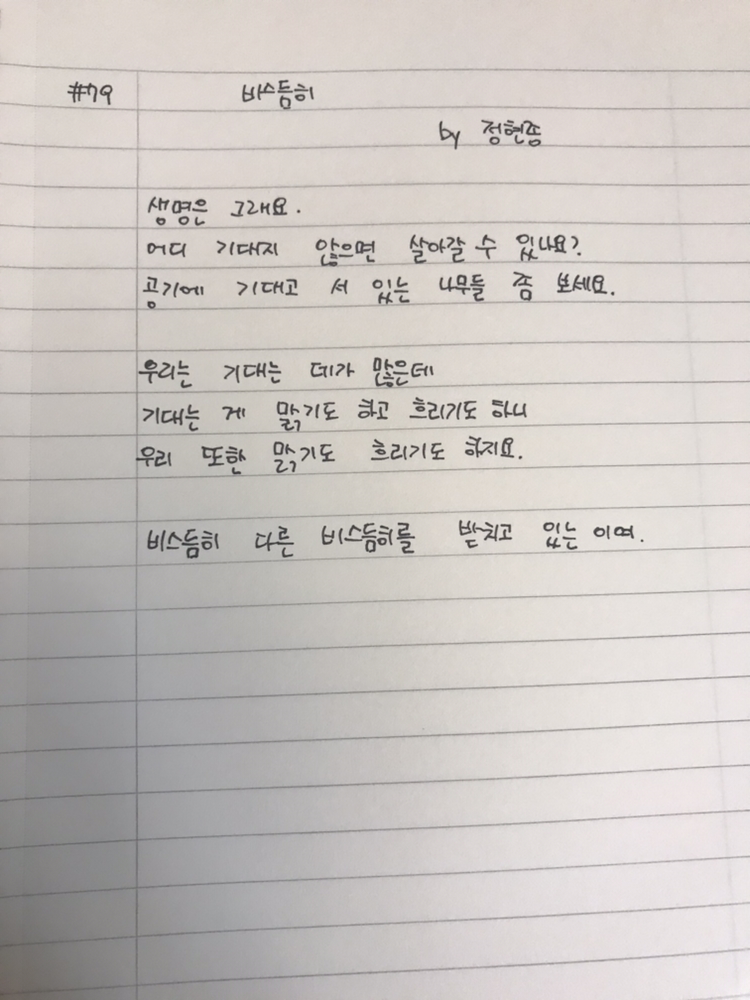 #79 비스듬히
by 정현종
생명은 그래요.
어디 기대지 않으면 살아갈 수 있나요?
공기에 기대고 서 있는 나무들 좀 보세요.
우리는 기대는 데가 많은데
기대는 게 맑기도 하고 흐리기도 하니
우리 또한 맑기도 흐리기도 하지요.
비스듬히 다른 비스듬히를 받치고 있는 이여.